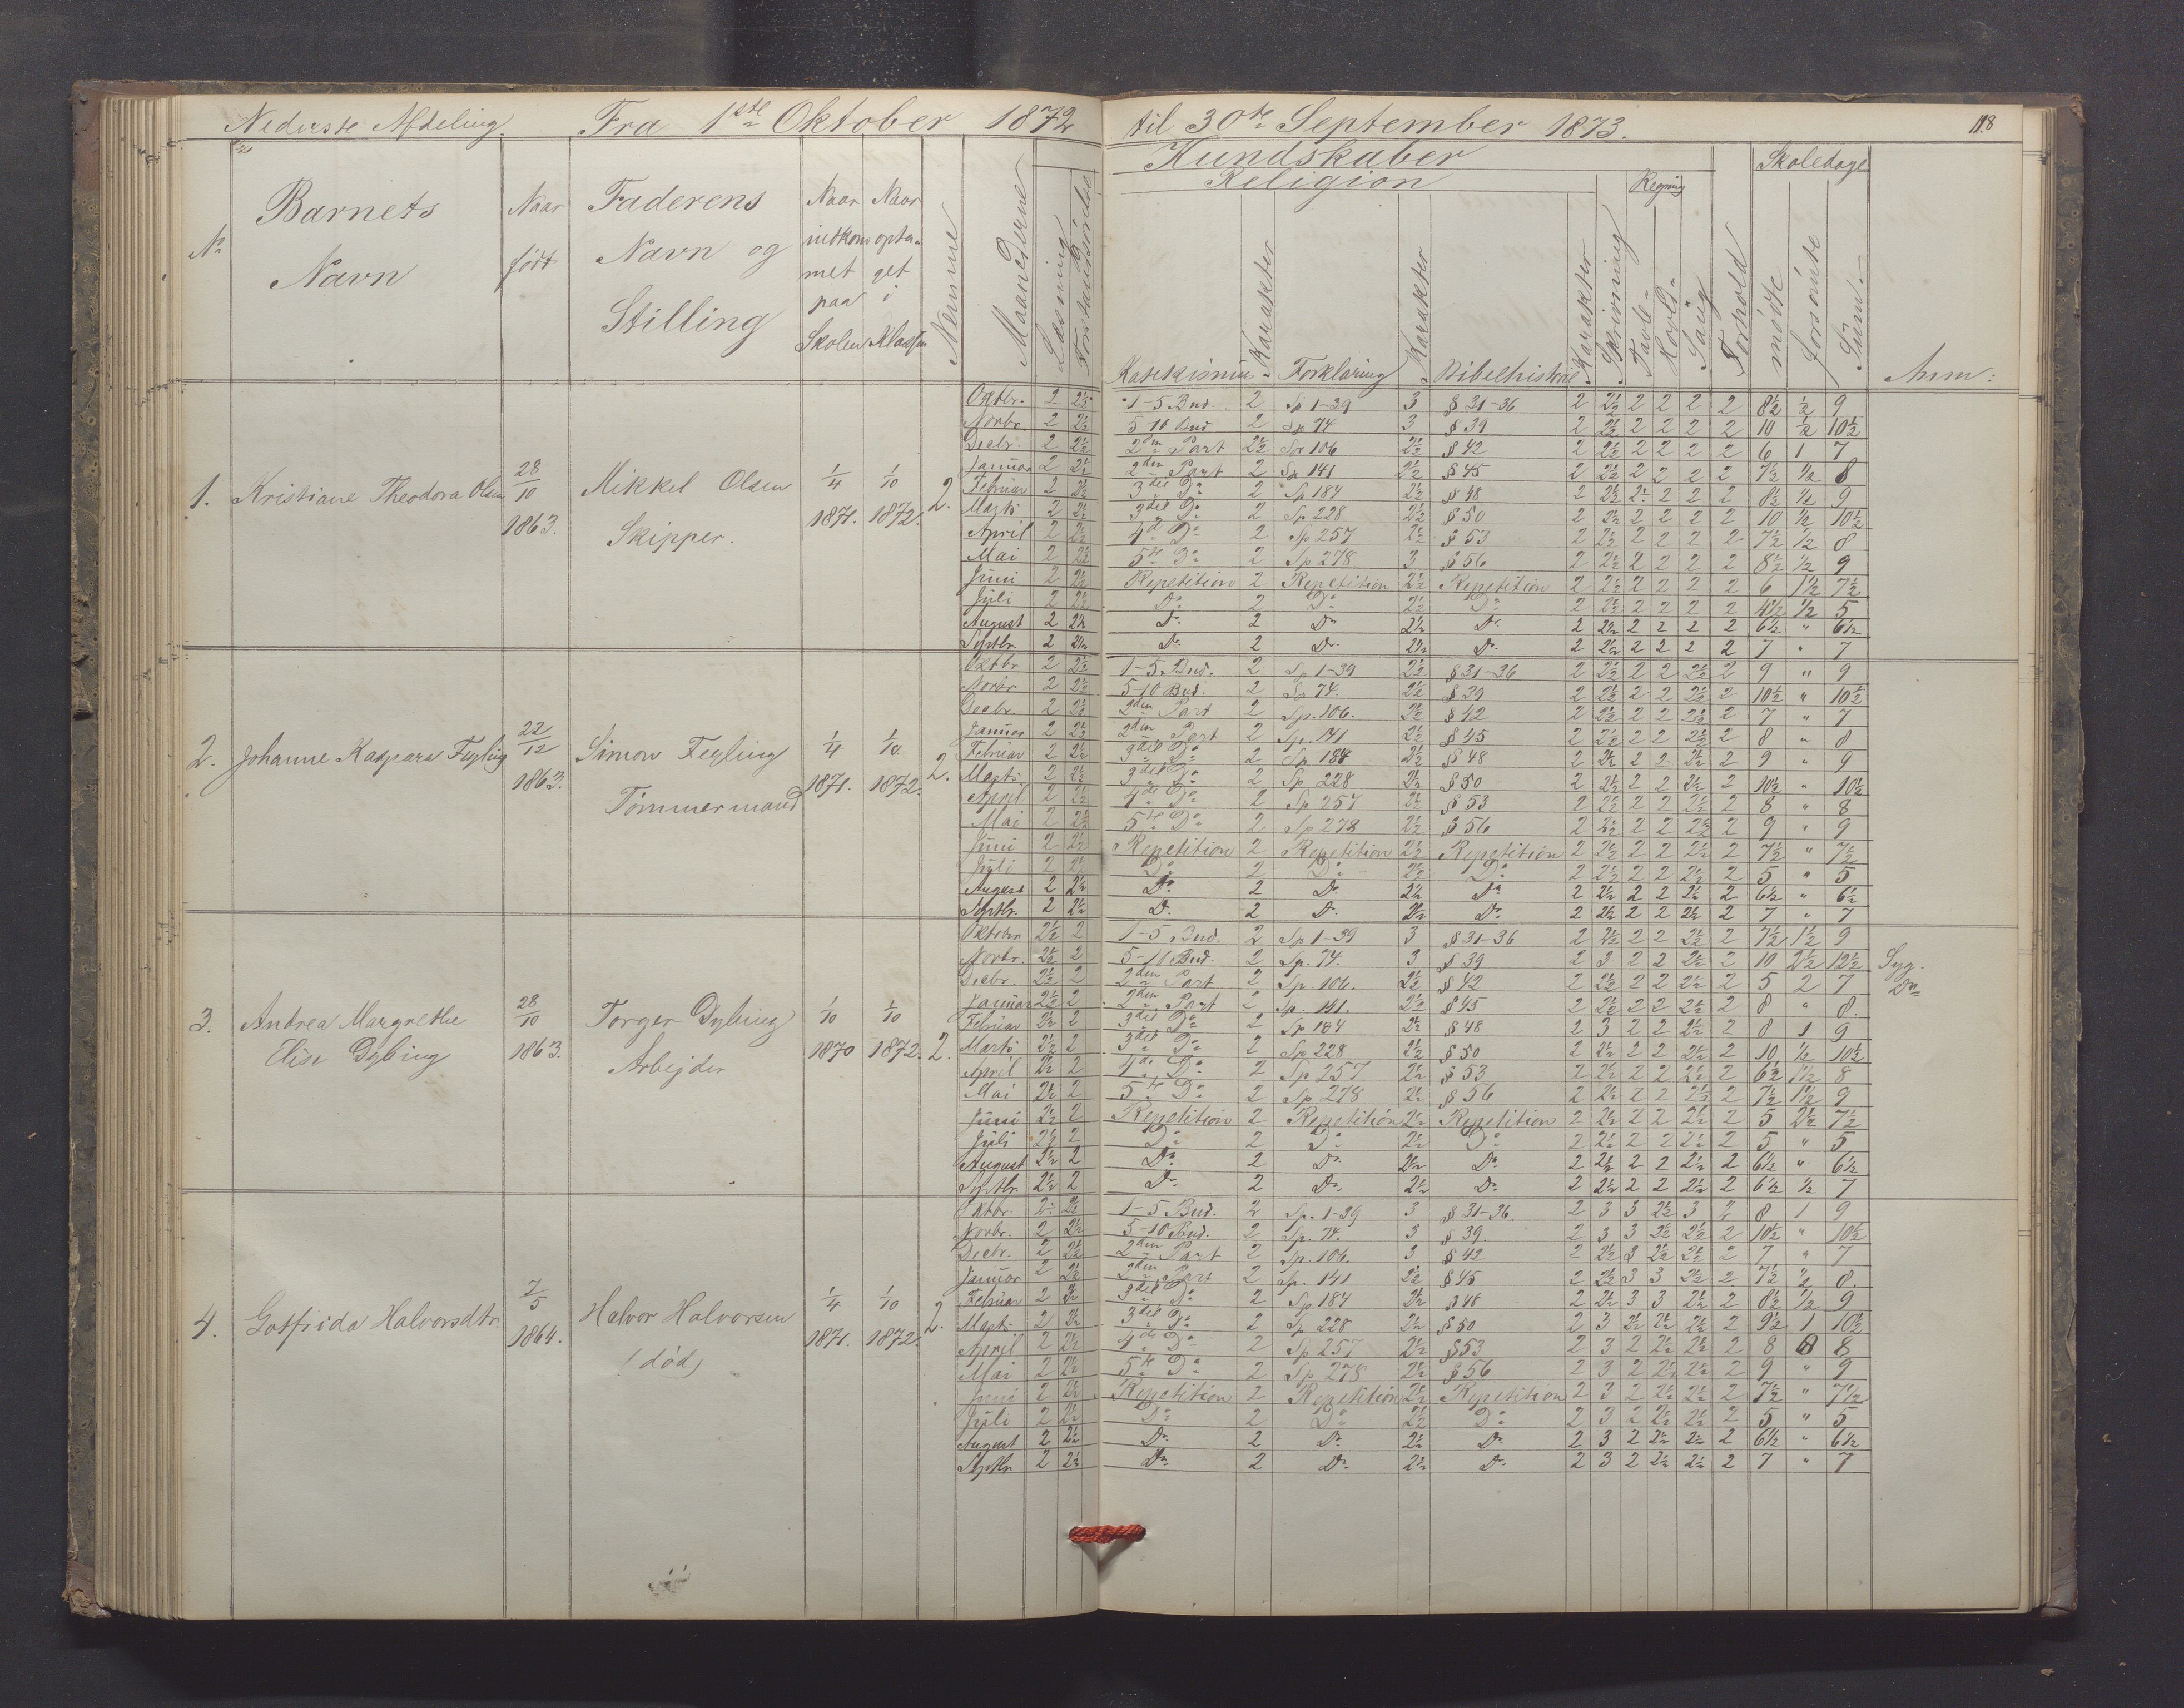 Nederste Afdeling. Fra 1ste Oktober 1872 til 30te September 1873. 118
Kundskaber Skoledage
Religion Regning
No Barnets Navn Naar født Faderens Navn og Stilling Naar indkommet paa Skolen Naar optaget i Klassen Nemme Maanederne Læsning Katekismus Karakter Forklaring Karakter Bibelhistorie Karakter Skrivning Tavle- Hoved- Sang Forhold mödte forsömte Sum Anm:
1. Kristiane Theodora Olsen 28/10 1863. Mikkel Olsen Skipper. 1/4 1871. 1/10 1872. 2.
Oktbr. 2 2½ 1-5 Bud. 2 Sp 1-39 3 § 31-36 2 2½ 2 2 2 2 8½ ½ 9
Novbr. 2 2½ 5-10 Bud 2 Sp 74 3 § 39 2 2½ 2 2 2 2 10 ½ 10½
Decbr. 2 2½ 2den Part 2½ Sp 106 2½ § 42 2 2½ 2 2 2 2 6 1 7
Januar 2 2½ 2den Part 2 Sp 141 2½ § 45 2 2½ 2 2 2 2 7½ ½ 8
Februar 2 2½ 3die Do 2 Sp 184 2½ § 48 2 2½ 2 2 2 2 8½ ½ 9
Marts 2 2½ 3die Do 2 Sp 228 2½ § 50 2 2½ 2 2 2 2 10 ½ 10½
April 2 2½ 4de Do 2 Sp 257 2½ § 53 2 2½ 2 2 2 2 7½ ½ 8
Mai 2 2½ 5te Do 2 Sp 278 3 § 56 2 2½ 2 2 2 2 8½ ½ 9
Juni 2 2½ Repetition 2 Repetition 2½ Repetition 2 2½ 2 2 2 2 6 1½ 7½
Juli 2 2½ Do 2 Do 2½ Do 2 2½ 2 2 2 2 4½ ½ 5
August 2 2½ Do 2 Do 2½ Do 2 2½ 2 2 2 2 6½ " 6½
Septbr. 2 2½ Do 2 Do 2½ Do 2 2½ 2 2 2 2 7 " 7
2. Johanne Kaspara Fegling 22/12 1863. Simon Fegling Tömmermand 1/4 1871. 1/10 1872. 2.
Oktbr 2 2½ 1-5 Bud. 2 Sp 1-39 2½ § 31-36 2 2½ 2 2 2½ 2 9 " 9
Novbr 2 2½ 5-10 Bud. 2 Sp 74. 2½ § 39 2 2½ 2 2 2½ 2 10½ " 10½
Decbr. 2 2½ 2den Part 2 Sp. 106. 2½ § 42 2 2½ 2 2 2½ 2 7 " 7
Januar 2 2½ 2den Part 2 Sp. 141 2½ § 45 2 2½ 2 2 2½ 2 8 " 8
Februar 2 2½ 3die Do 2 Sp 184 2½ § 48 2 2½ 2 2 2½ 2 9 " 9
Marts 2 2½ 3die Do 2 Sp 228 2½ § 50 2 2½ 2 2 2½ 2 10½ " 10½
April 2 2½ 4de Do 2 Sp 257 2½ § 53 2 2½ 2 2 2½ 2 8 " 8
Mai 2 2½ 5te Do 2 Sp 278 2½ § 56 2 2½ 2 2 2½ 2 9 " 9
Juni 2 2½ Repetition 2 Repetition 2½ Repetition 2 2½ 2 2 2½ 2 7½ " 7½
Juli 2 2½ Do 2 Do 2½ Do 2 2½ 2 2 2½ 2 5 " 5
August 2 2½ Do 2 Do 2½ Do 2 2½ 2 2 2½ 2 6½ " 6½
Septbr. 2 2½ Do 2 Do 2½ Do 2 2½ 2 2 2½ 2 7 " 7
3. Andrea Margrethe Elise Dybing 28/10 1863. Torger Dybing Arbejder 1/10 1870 1/10 1872. 2.
Oktober 2½ 2 1-5 Bud. 2 Sp 1-39 3 § 31-36 2 2½ 2 2 2½ 2 7½ 1½ 9
Novbr. 2½ 2 5-10 Bud. 2 Sp. 74. 3 § 39 2 3 2 2 2½ 2 10 2½ 12½ Syg.
Decbr. 2½ 2 2den Part 2 Sp. 106. 2½ § 42 2 2½ 2 2 2½ 2 5 2 7 Do
Januar 2½ 2 2den Part 2 Sp. 141. 2½ § 45 2 2½ 2 2 2½ 2 8 " 8.
Februar 2½ 2 3die Do 2 Sp 184 2½ § 48 2 3 2 2 2½ 2 8 1 9
Marts 2½ 2 3die Do 2 Sp 228 2½ § 50 2 2½ 2 2 2½ 2 10 ½ 10½
April 2½ 2 4de Do 2 Sp 257 2½ § 53 2 2½ 2 2 2½ 2 6½ 1½ 8
Mai 2½ 2 5te Do 2 Sp 278 2½ § 56 2 2½ 2 2 2½ 2 7½ 1½ 9
Juni 2½ 2 Repetition 2 Repetition 2½ Repetition 2 2½ 2 2 2½ 2 5 2½ 7½
Juli 2½ 2 Do 2 Do 2½ Do 2 2½ 2 2 2½ 2 5 " 5
August 2½ 2 Do 2 Do 2½ Do 2 2½ 2 2 2½ 2 6½ " 6½
Septbr. 2½ 2 Do 2 Do 2½ Do 2 2½ 2 2 2½ 2 6½ ½ 7
4. Gotfrida Halvorsdtr. 7/5 1864. Halvor Halvorsen (död) 1/4 1871. 1/10 1872. 2.
Oktbr. 2 2½ 1-5 Bud. 2 Sp. 1-39 3 § 31-36. 2 3 3 2½ 3 2 8 1 9
Novbr. 2 2½ 5-10 Bud. 2 Sp. 74. 3 § 39. 2 3 3 2½ 2½ 2 10½ " 10½
Decbr. 2 2½ 2den Part 2 Sp. 106. 3 § 42 2 2½ 3 2½ 2½ 2 7 " 7
Januar 2 2½ 2den Part 2 Sp. 141 2½ § 45 2 2½ 3 3 2½ 2 7½ ½ 8.
Februar 2 2½ 3die Do 2 Sp 184 2½ § 48 2 2½ 3 3 2½ 2 8½ ½ 9
Marts 2 2½ 3die Do 2 Sp 228 2½ § 50 2 3 2½ 2½ 2½ 2 9½ 1 10½
April 2 2½ 4de Do 2 Sp 257 2½ § 53 2 3 2 2½ 2½ 2 8 8
Mai 2 2½ 5te Do 2 Sp 278 2½ § 56 2 3 2 2½ 2½ 2 9 " 9
Juni 2 2½ Repetition 2 Repetition 2½ Repetition 2 3 2 2½ 2½ 2 7½ " 7½
Juli 2 2½ Do 2 Do 2½ Do 2 3 2 2½ 2½ 2 5 " 5
August 2 2½ Do 2 Do 2½ Do 2 3 2 2½ 2½ 2 6½ " 6½
Septbr. 2 2½ Do 2 Do 2½ Do 2 3 2 2½ 2½ 2 7 " 7